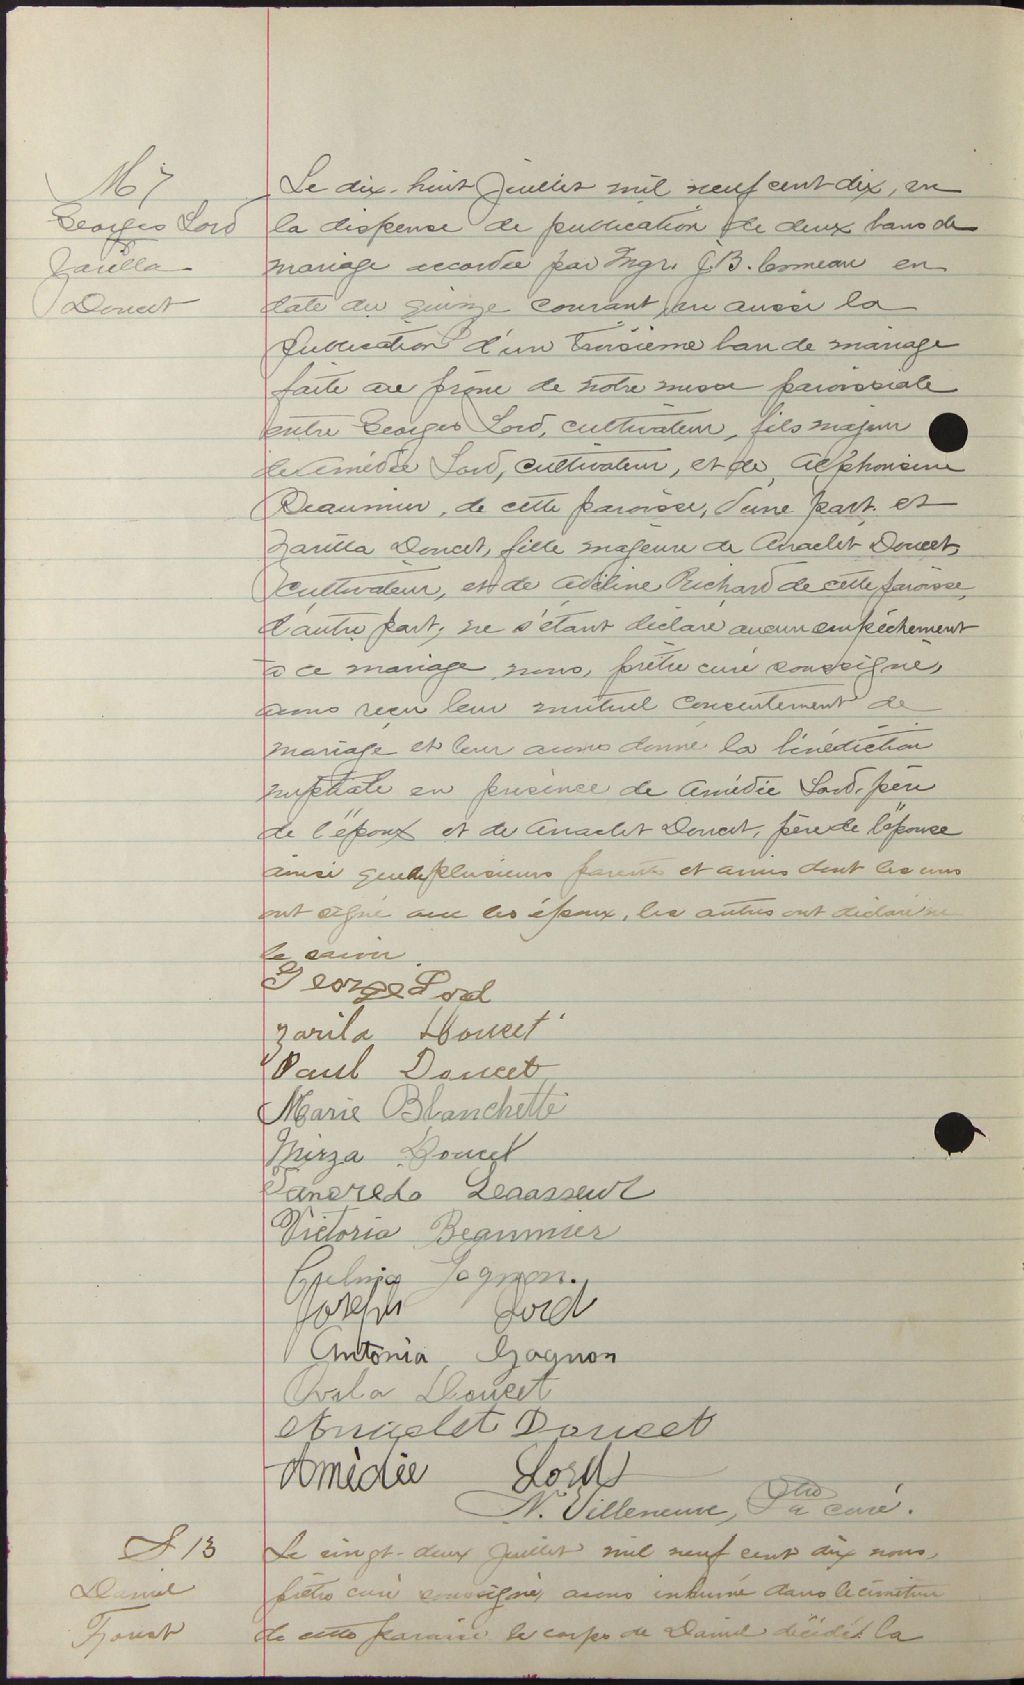 M 7
Georges Lord
Zarilla
Doucet
Le dix-huit Juillet mil neuf cent dix, vu
la dispense de publication de deux bans de
mariage accordée par Mgr. J. B. Comeau en
date du quinze courant, vu aussi la
publication d'un troisième ban de mariage
faite au prône de notre messe paroissiale
entre Georges Lord, cultivateur, fils majeur
de Amédée Lord, cultivateur, et de Alphonsine
Beaumier, de cette paroisse, d'une part, et
Zarilla Doucet, fille majeure de Anaclet Doucet,
cultivateur, et de Adéline Richard de cette paroisse,
d'autre part, ne s'étant déclaré aucun empêchement
à ce mariage nous, prêtre curé soussigné,
avons reçu leur mutuel consentement de
mariage et leur avons donné la bénédiction
nuptiale en présence de Amédée Lord, père
de l'époux et de Anaclet Doucet, père de l'épouse
ainsi que de plusieurs parents et amis dont les uns
ont signé avec les époux, les autres ont déclaré ne
le savoir.
George Lord
Zarila Doucet
Paul Doucet
Marie Blanchette
Mirza Doucet
Tancrede Levasseur
Victoria Beaumier
Gagnon.
Joseph Lord
Antonia Gagnon
Doucet
Anaclet Doucet
Amèdée Lord
N. Villeneuve, Ptre curé.
S 13
Daniel
Forest
Le vingt-deux Juillet mil neuf cent dix nous,
prêtre curé soussigné, avons inhumé dans le cimetière
de cette paroisse le corps de Daniel décédé la